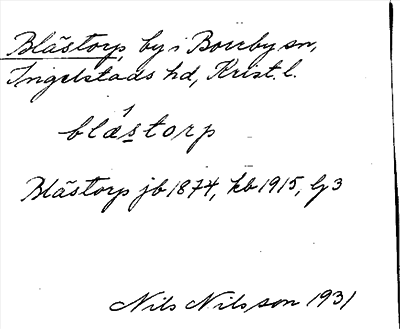 Blästorp, by i Borrby sn,
Ingelstads hd, Krist. l.
blæ̀storp
Blästorp jb 1874, kb 1915, G 3
Nils Nilsson 1931